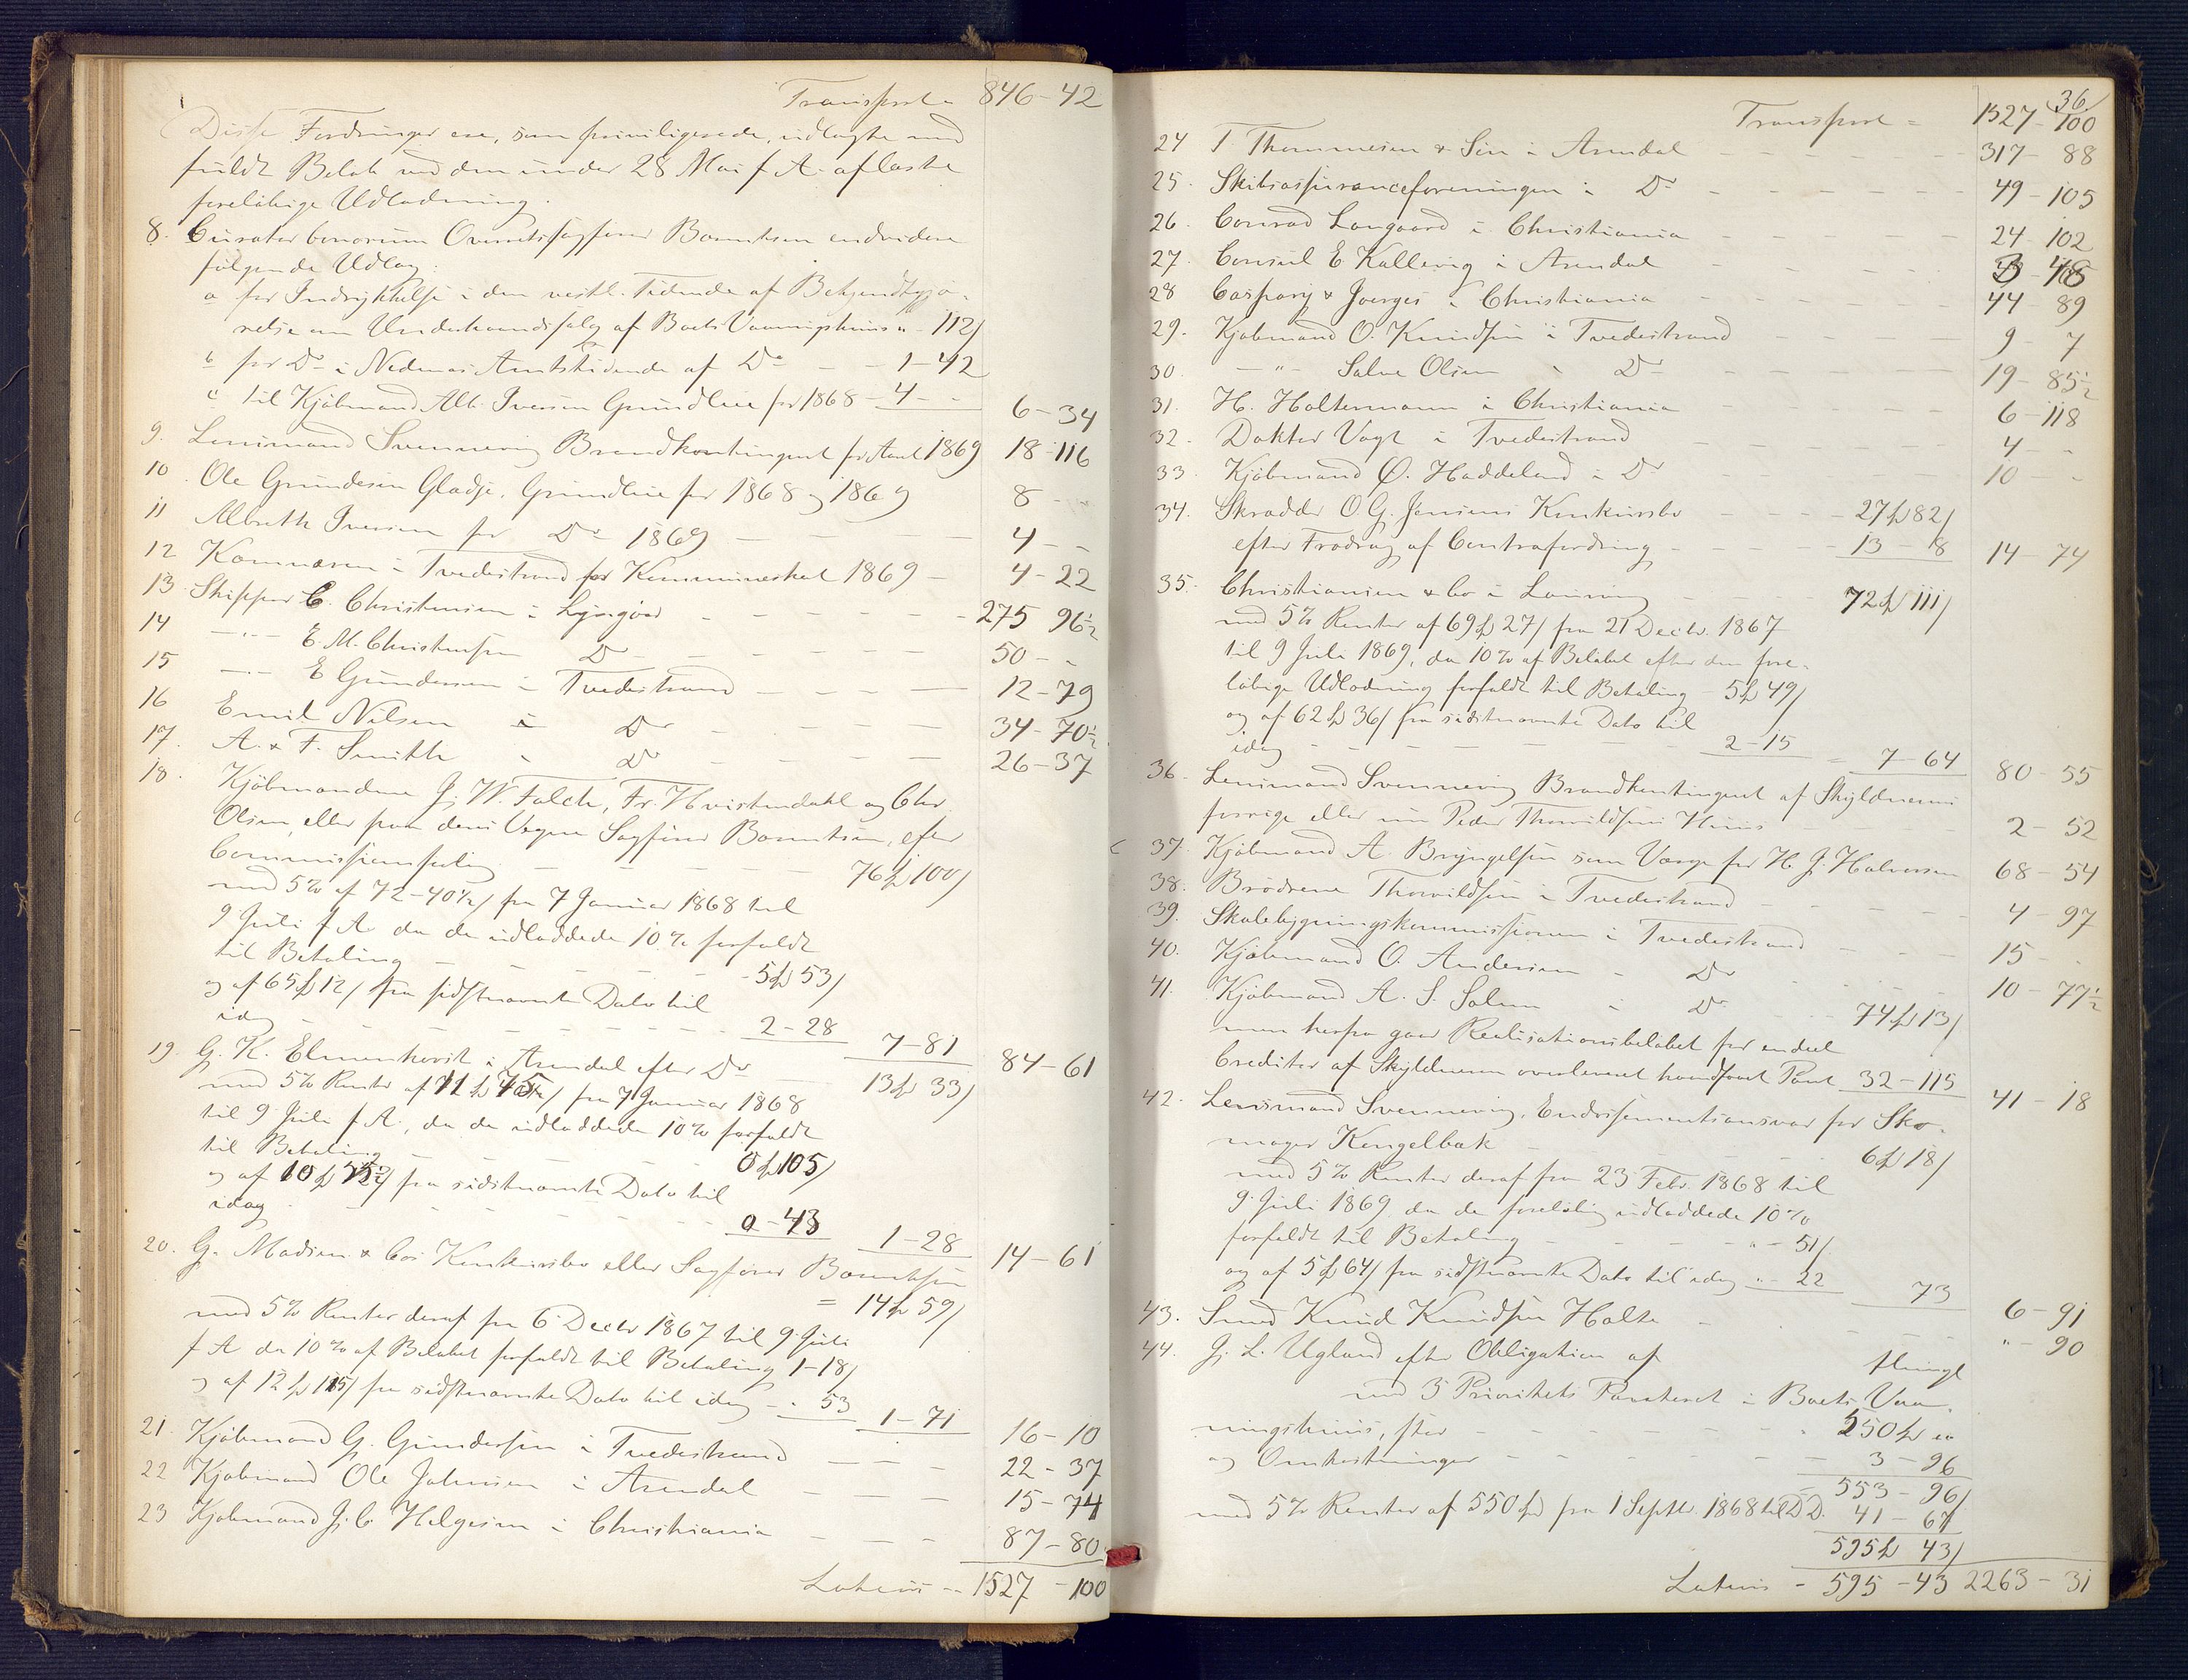 Transport 846 - 42
Disse Fordringer ere, som priviligerede, udlagte med
fuldt Beløb ved den under 28 Mai f. A. aflaste
foreløbige Udlodning.
8. Curator bonorum Overretssagfører Bomhsen endvidere
følgende Udlæg:
a for Indrykkelse i den vestl. Tidende af Bekjendtgjø-
relse om Underhaandssalg af Boets Vaaningshuus " - 112/
b for Do i Nedenæs Amtstidende af Do - - 1 - 42
c til Kjøbmand Alb. Iversen Grundleie for 1868 - 4 - - 6 - 34
9. Lensmand Svenneving Brandkontingent for Aaret 1869 18 - 116
10. Ole Gundesen Gladje, Grundleie for 1868 og 1869 8 - -
11 Albreth Iversen for Do 1869 4 - -
12 Kæmneren i Tvedestrand for Kommuneskat 1869 - 4 - 22
13 Skipper C. Christensen i Lyngør - 275 96½
14 — " — E. M. Christensen Do 50 - -
15 — " — E Gundersen i Tvedestrand 12 - 79
16 Emil Nilsen i Do 34 - 70½
17. A. & F. Smith " Do 26 - 37
18. Kjøbmændene J. W. Falck, Fr. Hvistendahl og Chr.
Olsen, eller paa deres Vegne Sagfører Bomhsen, efter
Commissionsforlig 76 ₰ 100/
med 5% af 72 - 40½/ fra 7 Januar 1868 til
9 Juli f A. da de udloddede 10 % forfaldt
til Betaling - 5 ₰ 53/
og af 65 ₰ 12/ fra sidstnævnte Dato til
idag 2 - 28 7 - 81 84 - 61
19. G. K. Elmenhorst i Arendal efter Do 13 ₰ 33/
med 5% Renter af 11 ₰ / fra 7 Januar 1868
til 9 Juli f. A., da de udloddede 10% forfaldt
til Betaling 0 ₰ 105/
og af 10 ₰ / fra sidstnævnte Dato til
idag 0 - 43 1 - 28 14 - 61
20. G. Madsen & Cos Konkursbo eller Sagfører Bomhsen
= 14 ₰ 59/
med 5% Renter deraf fra 6 Decbr 1867 til 9 Juli
f A. da 10 % af Beløbet forfaldt til Betaling 1 - 18/
og af 12 ₰ 115/ fra sidstnævnte Dato til idag - " 53 1 - 71 16 - 10
21. Kjøbmand G. Gundersen i Tvedestrand 22 - 37
22 Kjøbmand Ole Johnsen i Arendal 15 - 74
23 Kjøbmand J. C. Helgesen i Christiania 87 - 80
Lateris - 1527 - 100
36.
Transport = 1527 - 100
24 T. Thommesen & Søn i Arendal 317 - 88
25. Skibsassuranceforeningen i Do 49 - 105
26. Conrad Langaard i Christiania 24 - 102
27. Consul E Kallevig i Arendal 3 - 48
28 Caspary & Joerges i Christiania 44 - 89
29. Kjøbmand O. Knudsen i Tvedestrand 9 - 7
30. — " — Salve Olsen " Do 19 - 85½
31. H. Haltermann i Christiania 6 - 118
32. Doktor Vogt i Tvedestrand 4 - -
33. Kjøbmand O. Haddeland i Do 10 - -
34. Skræddr O. G. Jensens Konkursbo 27 ₰ 82/
efter Fradrag af Contrafordring 13 - 8 14 - 74
35. Christiansen & Co i Laurvig 72 ₰ 111/
med 5% Renter af 69 ₰ 27/ fra 21 Decbr. 1867
til 9 Juli 1869, da 10% af Beløbet efter den fore-
løbige Udlodning forfaldt til Betaling - 5 ₰ 49/
og af 62 ₰ 36/ fra sidstnævnte Dato til
idag 2 - 15 = 7 - 64 80 - 55
36. Lensmand Svenneving Brandkontingent af Skyldnerens
forrige eller nu Peder Thorvildsens Huus 2 - 52
37. Kjøbmand A. Bryngelsen som Værge for H. J. Halvorsen 68 - 54
38. Brødrene Thorvildsen i Tvedestrand 4 - 97
39. Skolebygningskommissionen i Tvedestrand 15 - .
40. Kjøbmand O. Andersen - Do 10 - 77½
41. Kjøbmand A. S. Solum i Do 74 ₰ 13/
men herfra gaar Realisationsbeløbet for endeel
Creditor af Skyldneren overleveret haandfaaet Pant 32 - 115 41 - 18
42. Lensmand Svenneving, Endossementsansvar for Sko-
mager Kongelbæk 6 ₰ 18/
med 5% Renter deraf fra 23 Febr. 1868 til
9. Juli 1869, da de foreløbig udloddede 10%
forfaldt til Betaling " - 51/
og af 5 ₰ 64/ fra sidstnævnte Dato til idag " - 22 73 6 - 91
43. Smed Knud Knudsen Holte " - 90
44. J. L. Ugland efter Obligation af thingl
med 3 Prioritets Panteret i Boets Vaa-
ningshuus, stor 550 ₰ "
og Omkostninger 3 - 96
553 - 96/
med 5% Renter af 550 ₰ fra 1 Septbr. 1868 til D.D. 41 - 67
595 ₰ 43/
Lateris - 595 - 43 2263 - 31